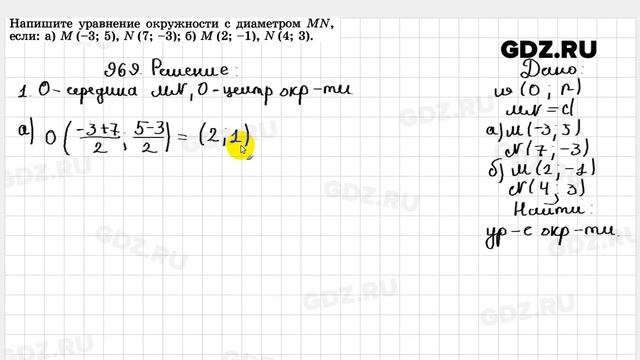 Напишите уравнение окружности с диаметром MN,
если: а) M (−3; 5), N (7; −3); б) M (2; −1), N (4; 3).
GDZ.RU
969. Решение:
1. O - середина MN, O - центр окр-ти
а) O ( (-3+7)/2 ; (5-3)/2 ) = (2; 1)
Дано:
(O; r)
MN = d
а) M (-3; 5)
N (7; -3)
б) M (2; -1)
N (4; 3)
Найти:
ур-е окр-ти.
GDZ.RU